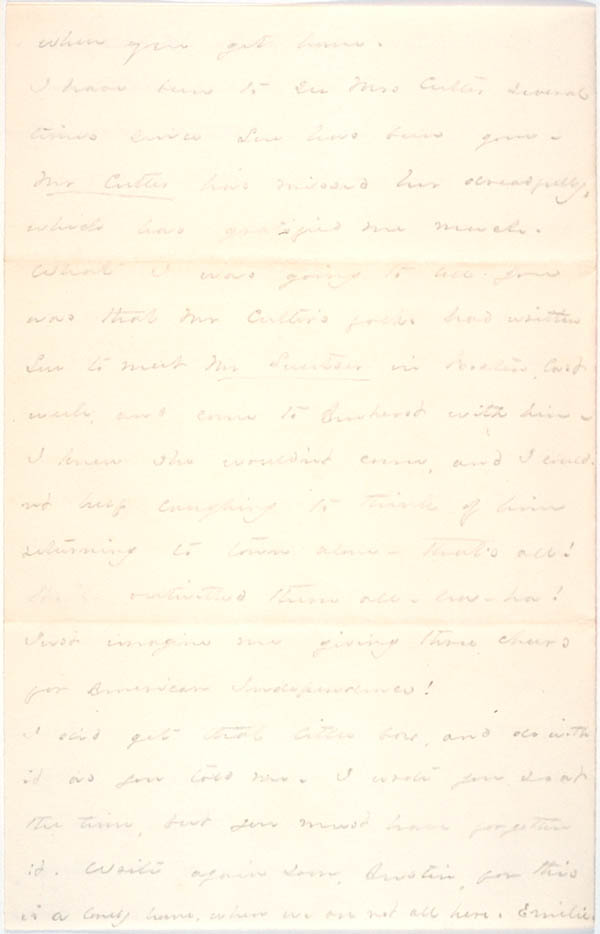 when you get home.
I have been to see Mrs Cutler several
times since Sue has been gone.
Mr Cutler has missed her dreadfully,
which has gratified me much.
What I was going to tell you
was that Mr Cutler's folks had written
Sue to meet Mr Sweetser in Boston last
week, and come to Amherst with him -
I knew she wouldn't come, and I could
n't help laughing to think of him
returning to town alone - that's all!
outwitted them all - ha - ha!
Just imagine me giving three cheers
for American Independence!
I did get that little box, and do with
it as you told me. I wrote you so at
the time, but you must have forgotten
it. Write again soon, Austin, for this
is a lonely house, when we are not all here. Emilie.